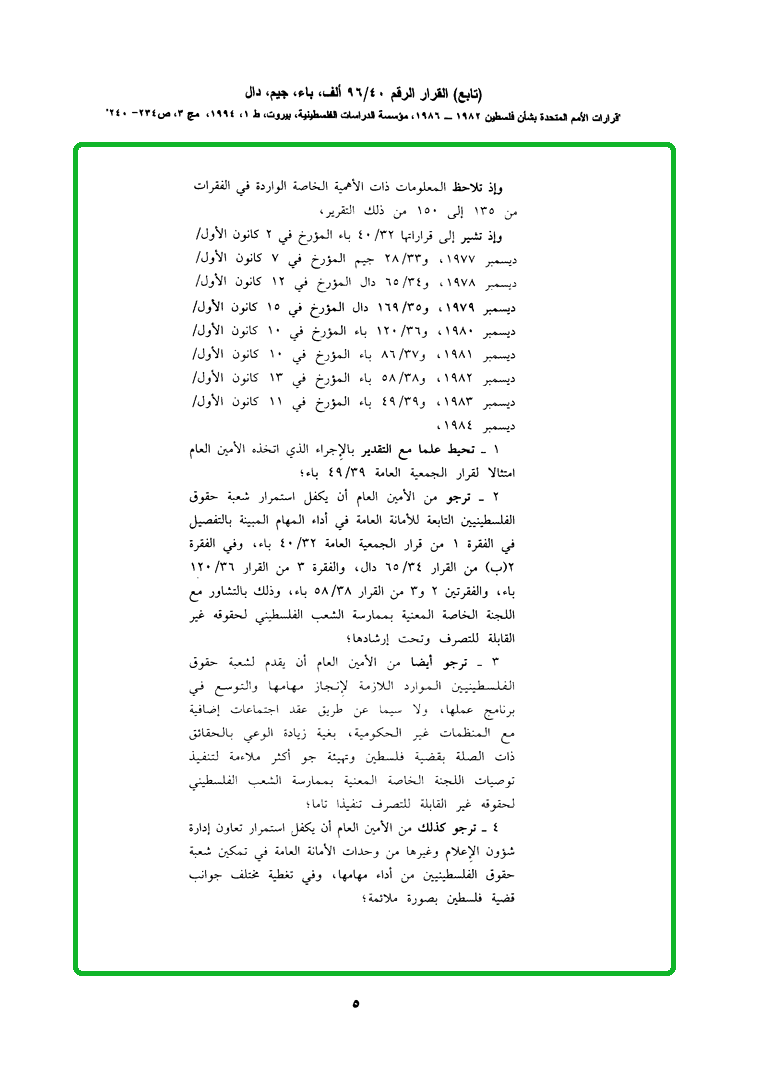 (تابع) القرار الرقم ٩٦/٤٠ ألف، باء، جيم، دال
"قرارات الأمم المتحدة بشأن فلسطين ١٩٨٢ ــ ١٩٨٦، مؤسسة الدراسات الفلسطينية، بيروت، ط ١، ١٩٩٤، مج ٣، ص ٢٣٤- ٢٤٠"
وإذ تلاحظ المعلومات ذات الأهمية الخاصة الواردة في الفقرات
من ١٣٥ إلى ١٥٠ من ذلك التقرير،
وإذ تشير إلى قراراتها ٤٠/٣٢ باء المؤرخ في ٢ كانون الأول/
ديسمبر ١٩٧٧، و٢٨/٣٣ جيم المؤرخ في ٧ كانون الأول/
ديسمبر ١٩٧٨، و٦٥/٣٤ دال المؤرخ في ١٢ كانون الأول/
ديسمبر ١٩٧٩، و١٦٩/٣٥ دال المؤرخ في ١٥ كانون الأول/
ديسمبر ١٩٨٠، و١٢٠/٣٦ باء المؤرخ في ١٠ كانون الأول/
ديسمبر ١٩٨١، و٨٦/٣٧ باء المؤرخ في ١٠ كانون الأول/
ديسمبر ١٩٨٢، و٥٨/٣٨ باء المؤرخ في ١٣ كانون الأول/
ديسمبر ١٩٨٣، و٤٩/٣٩ باء المؤرخ في ١١ كانون الأول/
ديسمبر ١٩٨٤،
١ ـ تحيط علما مع التقدير بالإجراء الذي اتخذه الأمين العام
امتثالا لقرار الجمعية العامة ٤٩/٣٩ باء؛
٢ ـ ترجو من الأمين العام أن يكفل استمرار شعبة حقوق
الفلسطينيين التابعة للأمانة العامة في أداء المهام المبينة بالتفصيل
في الفقرة ١ من قرار الجمعية العامة ٤٠/٣٢ باء، وفي الفقرة
٢(ب) من القرار ٦٥/٣٤ دال، والفقرة ٣ من القرار ١٢٠/٣٦
باء، والفقرتين ٢ و٣ من القرار ٥٨/٣٨ باء، وذلك بالتشاور مع
اللجنة الخاصة المعنية بممارسة الشعب الفلسطيني لحقوقه غير
القابلة للتصرف وتحت إرشادها؛
٣ ـ ترجو أيضا من الأمين العام أن يقدم لشعبة حقوق
الفلسطينيين الموارد اللازمة لإنجاز مهامها والتوسع في
برنامج عملها، ولا سيما عن طريق عقد اجتماعات إضافية
مع المنظمات غير الحكومية، بغية زيادة الوعي بالحقائق
ذات الصلة بقضية فلسطين وتهيئة جو أكثر ملاءمة لتنفيذ
توصيات اللجنة الخاصة المعنية بممارسة الشعب الفلسطيني
لحقوقه غير القابلة للتصرف تنفيذا تاما؛
٤ ـ ترجو كذلك من الأمين العام أن يكفل استمرار تعاون إدارة
شؤون الإعلام وغيرها من وحدات الأمانة العامة في تمكين شعبة
حقوق الفلسطينيين من أداء مهامها، وفي تغطية مختلف جوانب
قضية فلسطين بصورة ملائمة؛
٥